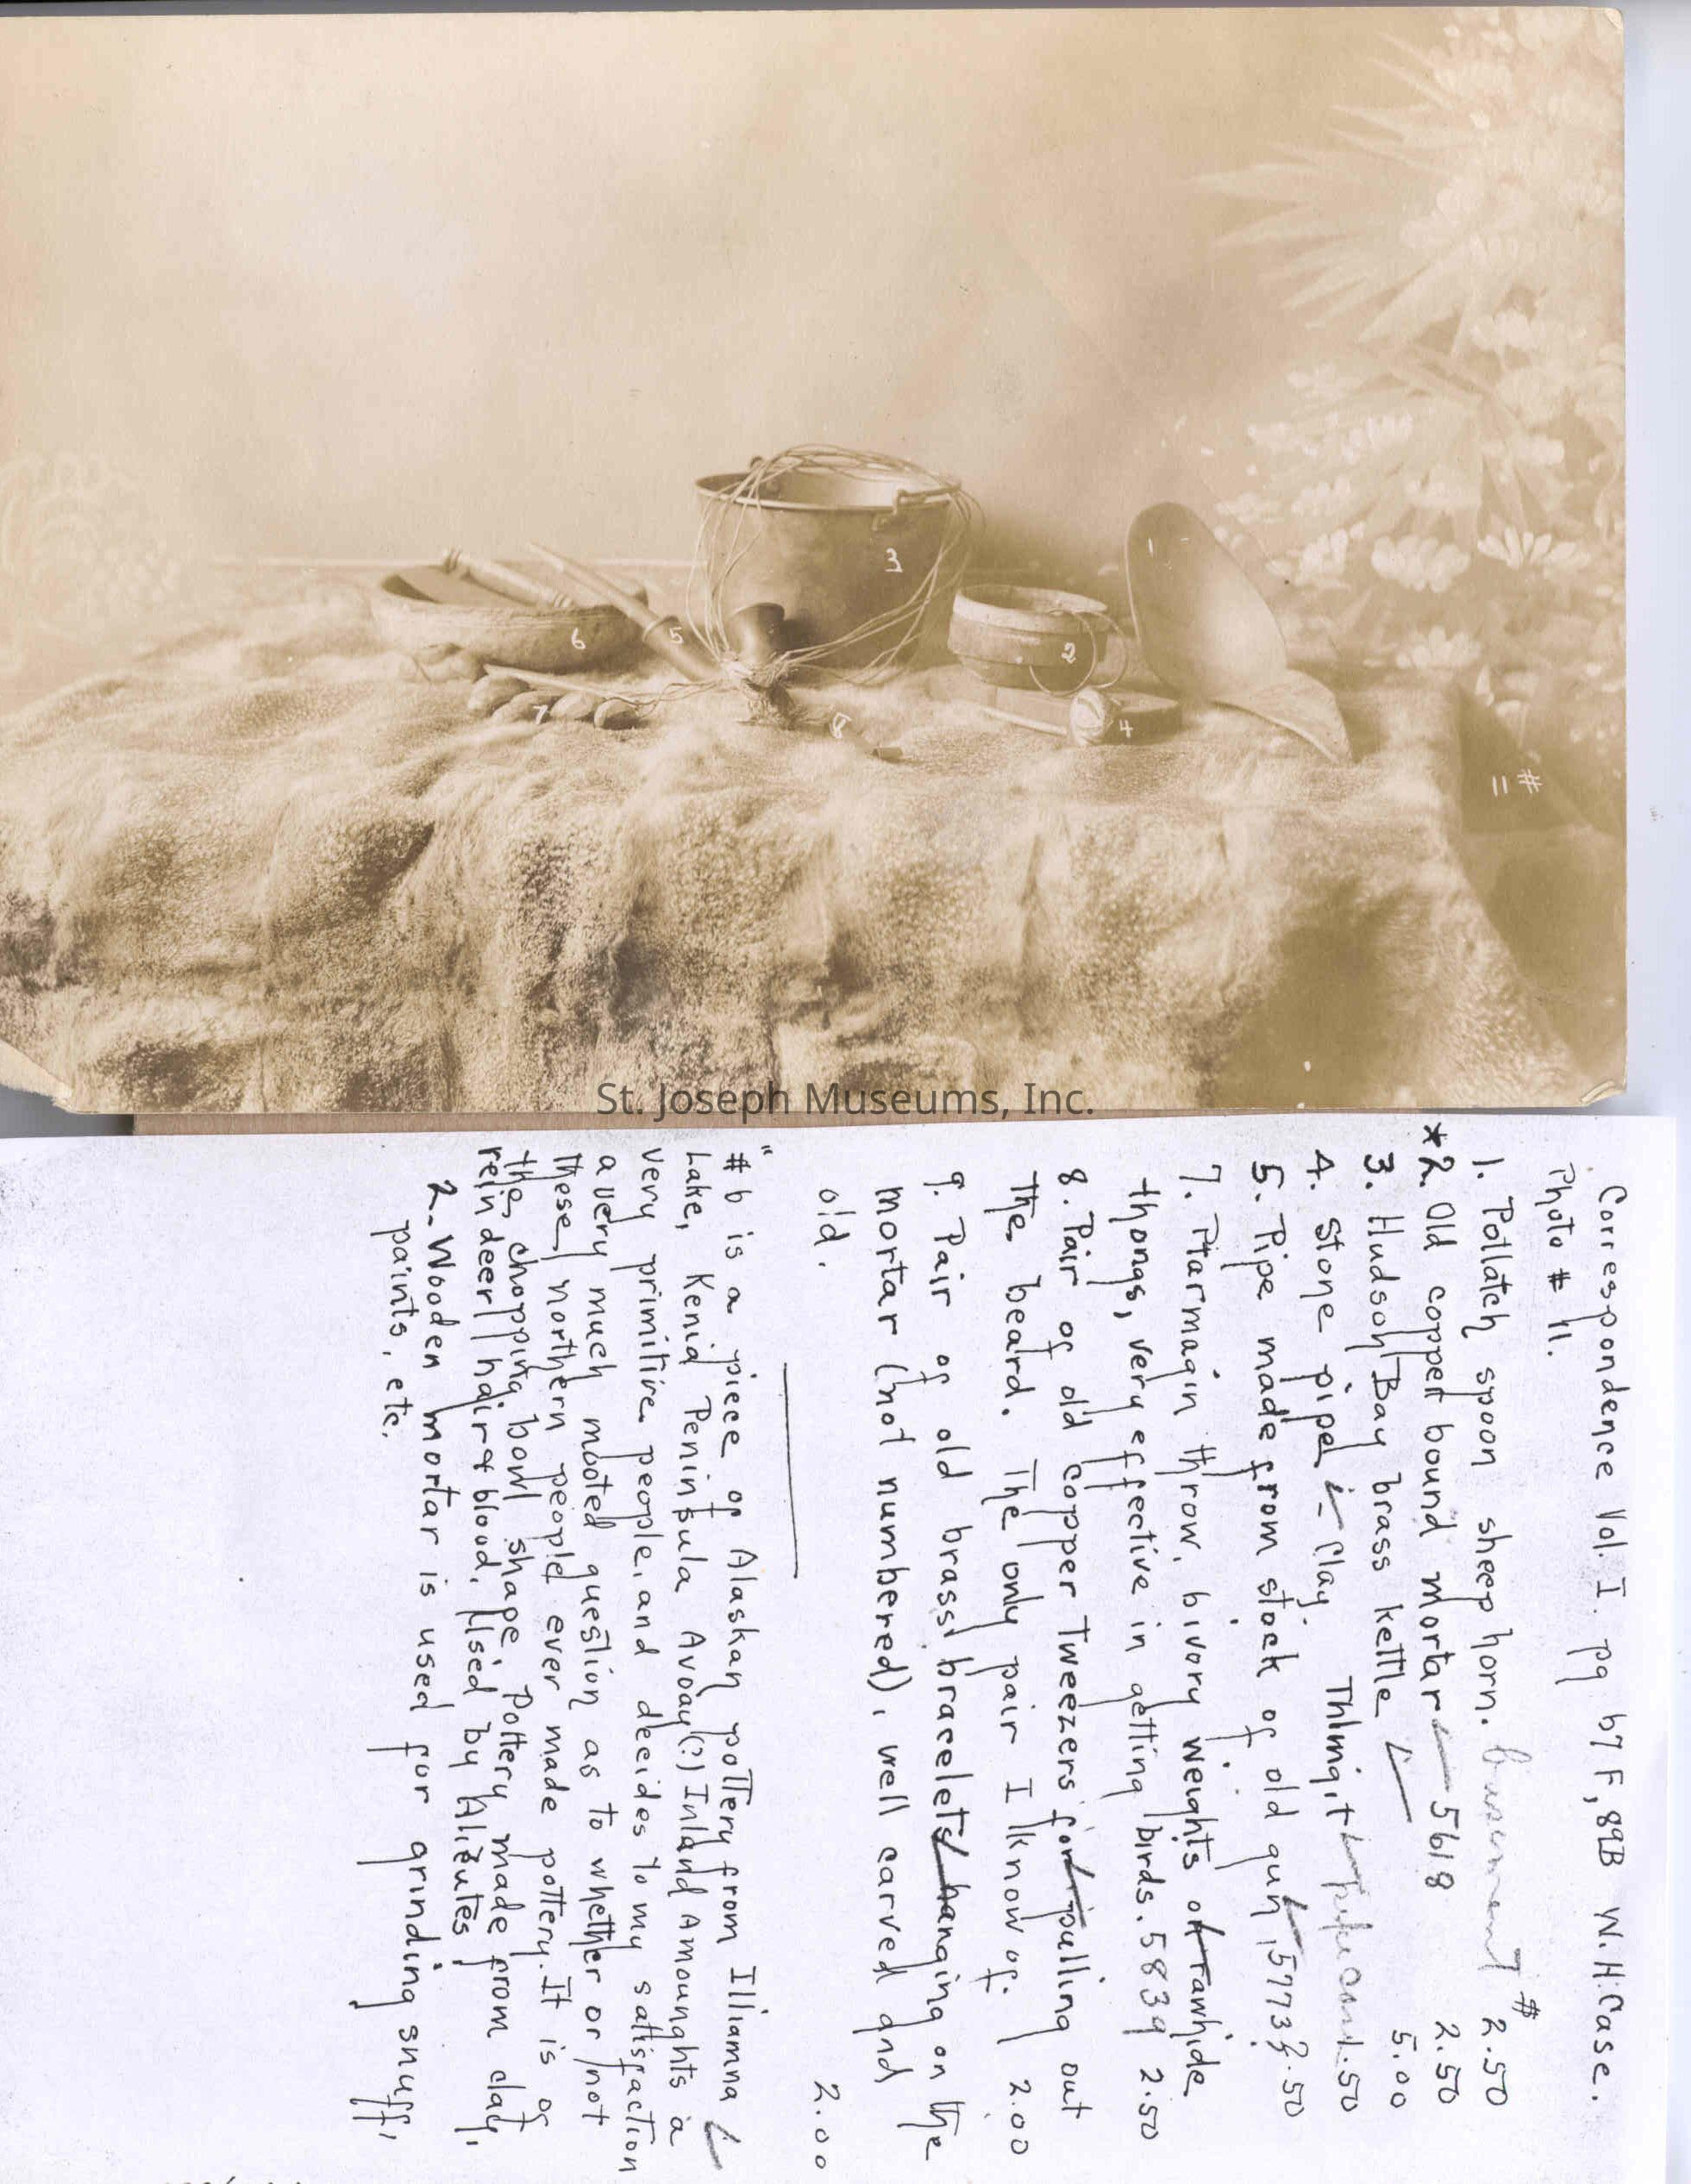 1
2
3
4
5
6
7
8
# 11
St. Joseph Museums, Inc.
Correspondence Vol. I. pg 67 F, 89B W. H. Case.
Photo # 11.
1. Potlatch spoon sheep horn. basement # 2.50
*2. Old copper bound mortar 5618 2.50
3. Hudson Bay brass kettle 5.00
4. Stone pipe - Clay. Thlingit 1.50
5. Pipe made from stock of old gun 5773
7. Ptarmagin throw. ivory weights of rawhide
thongs, very effective in getting birds. 5839 2.50
8. Pair of old copper Tweezers for pulling out
the beard. The only pair I know of. 2.00
9. Pair of old brass bracelets hanging on the
mortar (not numbered), well carved and
old. 2.00
"#6 is a piece of Alaskan pottery from Illiamna
Lake, Kenia Peninsula Avoay(?) Inland Amounghts a
very primitive people, and decides to my satisfaction
a very much mooted question as to whether or not
these northern people ever made pottery. It is of
the chopping bowl shape. Pottery made from clay,
reindeer hair & blood. Used by Alieutes"
2. Wooden mortar is used for grinding snuff,
paints, etc.